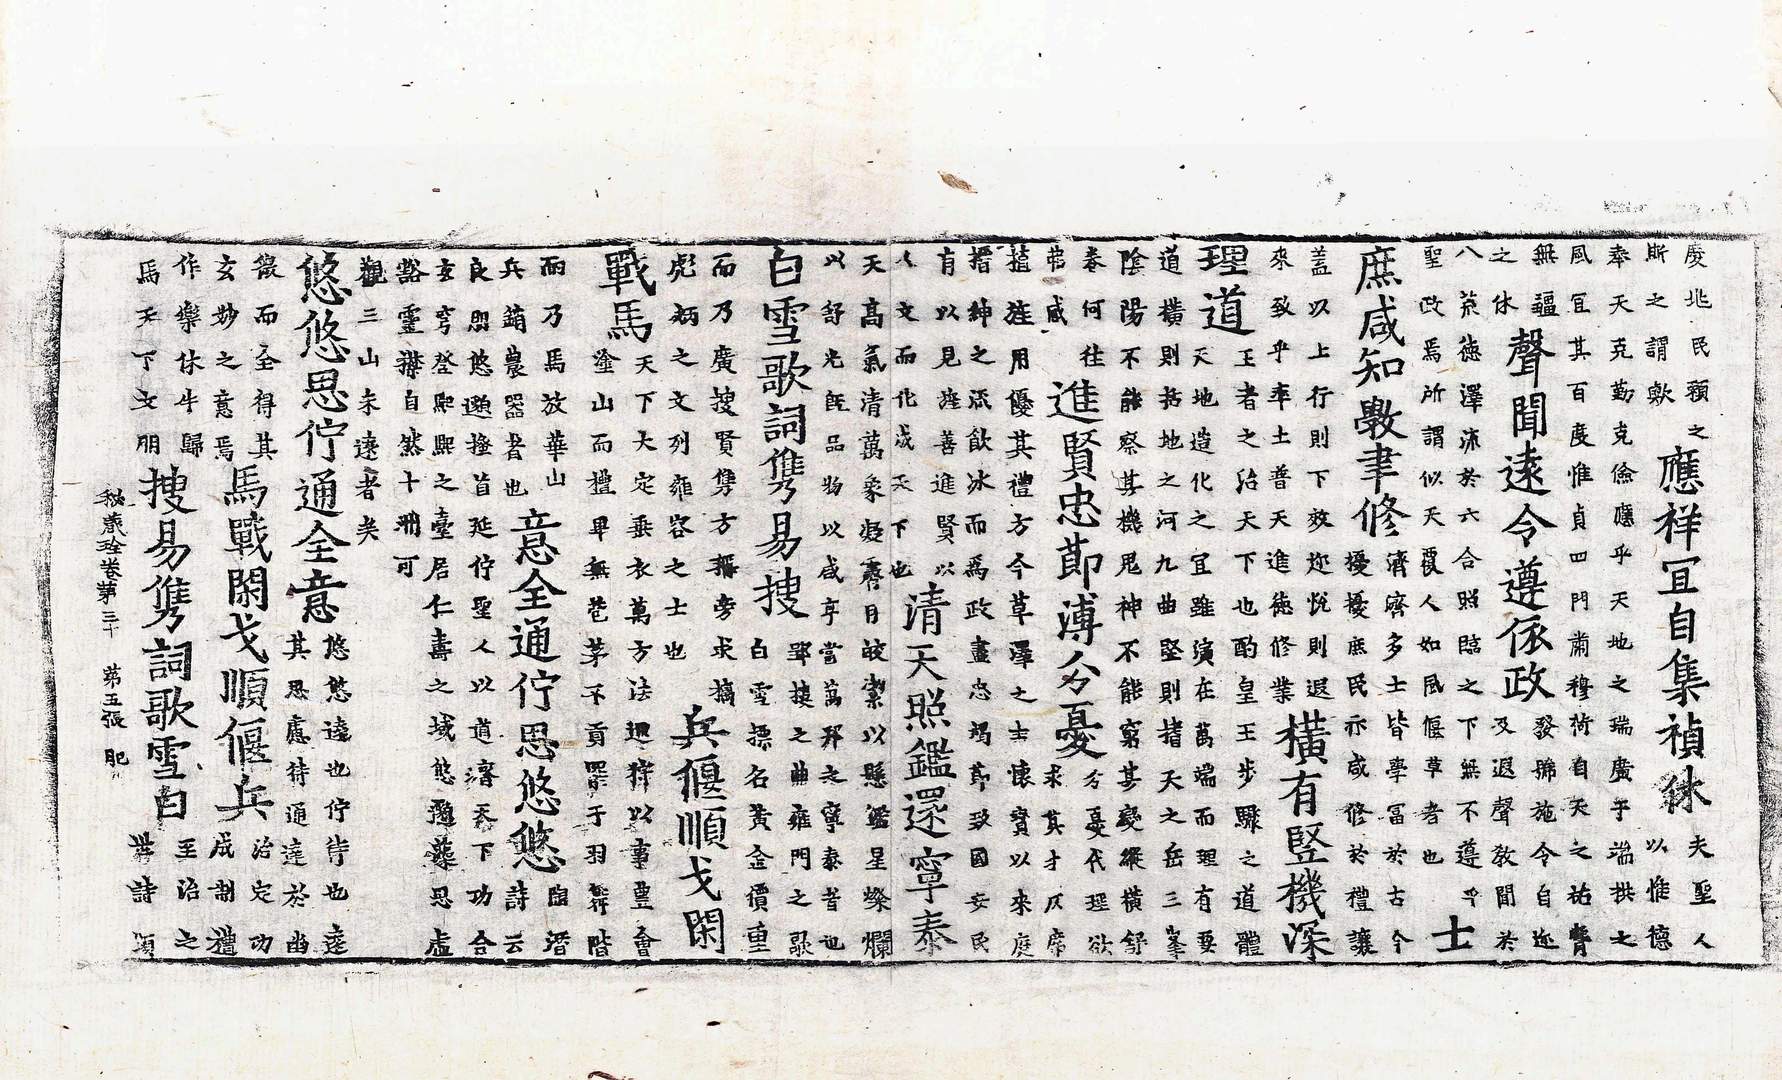 慶兆民賴之
斯之謂歟
應祥冝自集禎休
夫聖人
以惟德
奉天克勤克儉應乎天地之瑞廣乎端拱之
風冝其百度惟貞四門肅穆荷自天之祐膺
無疆
之休
聲聞遠令遵依政
發號施令自迩
及遐聲教聞於
八荒德澤沛於六合照臨之下無不遵乎
聖政焉所謂似天覆人如風偃草者也
士
庶咸知斅聿修
濟濟多士皆學冨於古今
擾擾庶民亦咸修於禮讓
蓋以上行則下效迩恱則遐
來致乎率土普天進德修業
橫有竪機深
理道
王者之治天下也酌皇王步驟之道體
天地造化之冝雖演在萬端而理有要
道橫則括地之河九曲竪則揩天之岳三峯
陰陽不能察其機鬼神不能窮其變縱橫舒
卷何往
弗咸
進賢忠節溥分憂
分憂代理欲
求其才仄席
旌用優其禮方今草澤之士懷寶以來庭
搢紳之流飲冰而爲政盡忠竭節致國安民
有以見旌善進賢以
人文而化成天下也
清天照鑑還寧泰
天高氣清萬象凝霽月皎潔以懸鑑星燦爛
以舒光旣品物以咸亨當萬邦之寧泰者也
白雪歌詞雋易搜
郢接之曲雍門之歌
白雪摽名黃金價重
而乃廣搜賢雋方旁求摛
彪炳之文列雍容之士也
兵偃順戈閑
戰馬
天下大定垂衣萬方法迴狩以事豊會
塗山而禮畢無苞茅不貢罪于羽舞階
而乃馬放華山
兵銷農器者也
意全通佇思悠悠
陶潛
詩云
良朋悠邈搔首延佇聖人以道濟天下功合
玄穹登熙熙之臺居仁壽之域悠邈藂思虛
豁靈襟自然十洲可
觀三山未遠者矣
悠悠思佇通全意
悠悠遠也佇待也遠
其思慮待通達於幽
微而全得其
玄妙之意焉
馬戰閑戈順偃兵
治定功
成制禮
作樂休牛歸
馬天下文明
搜易雋詞歌雪白
至治之
世詩頌
秘蔵詮卷第三十 苐五張 肥